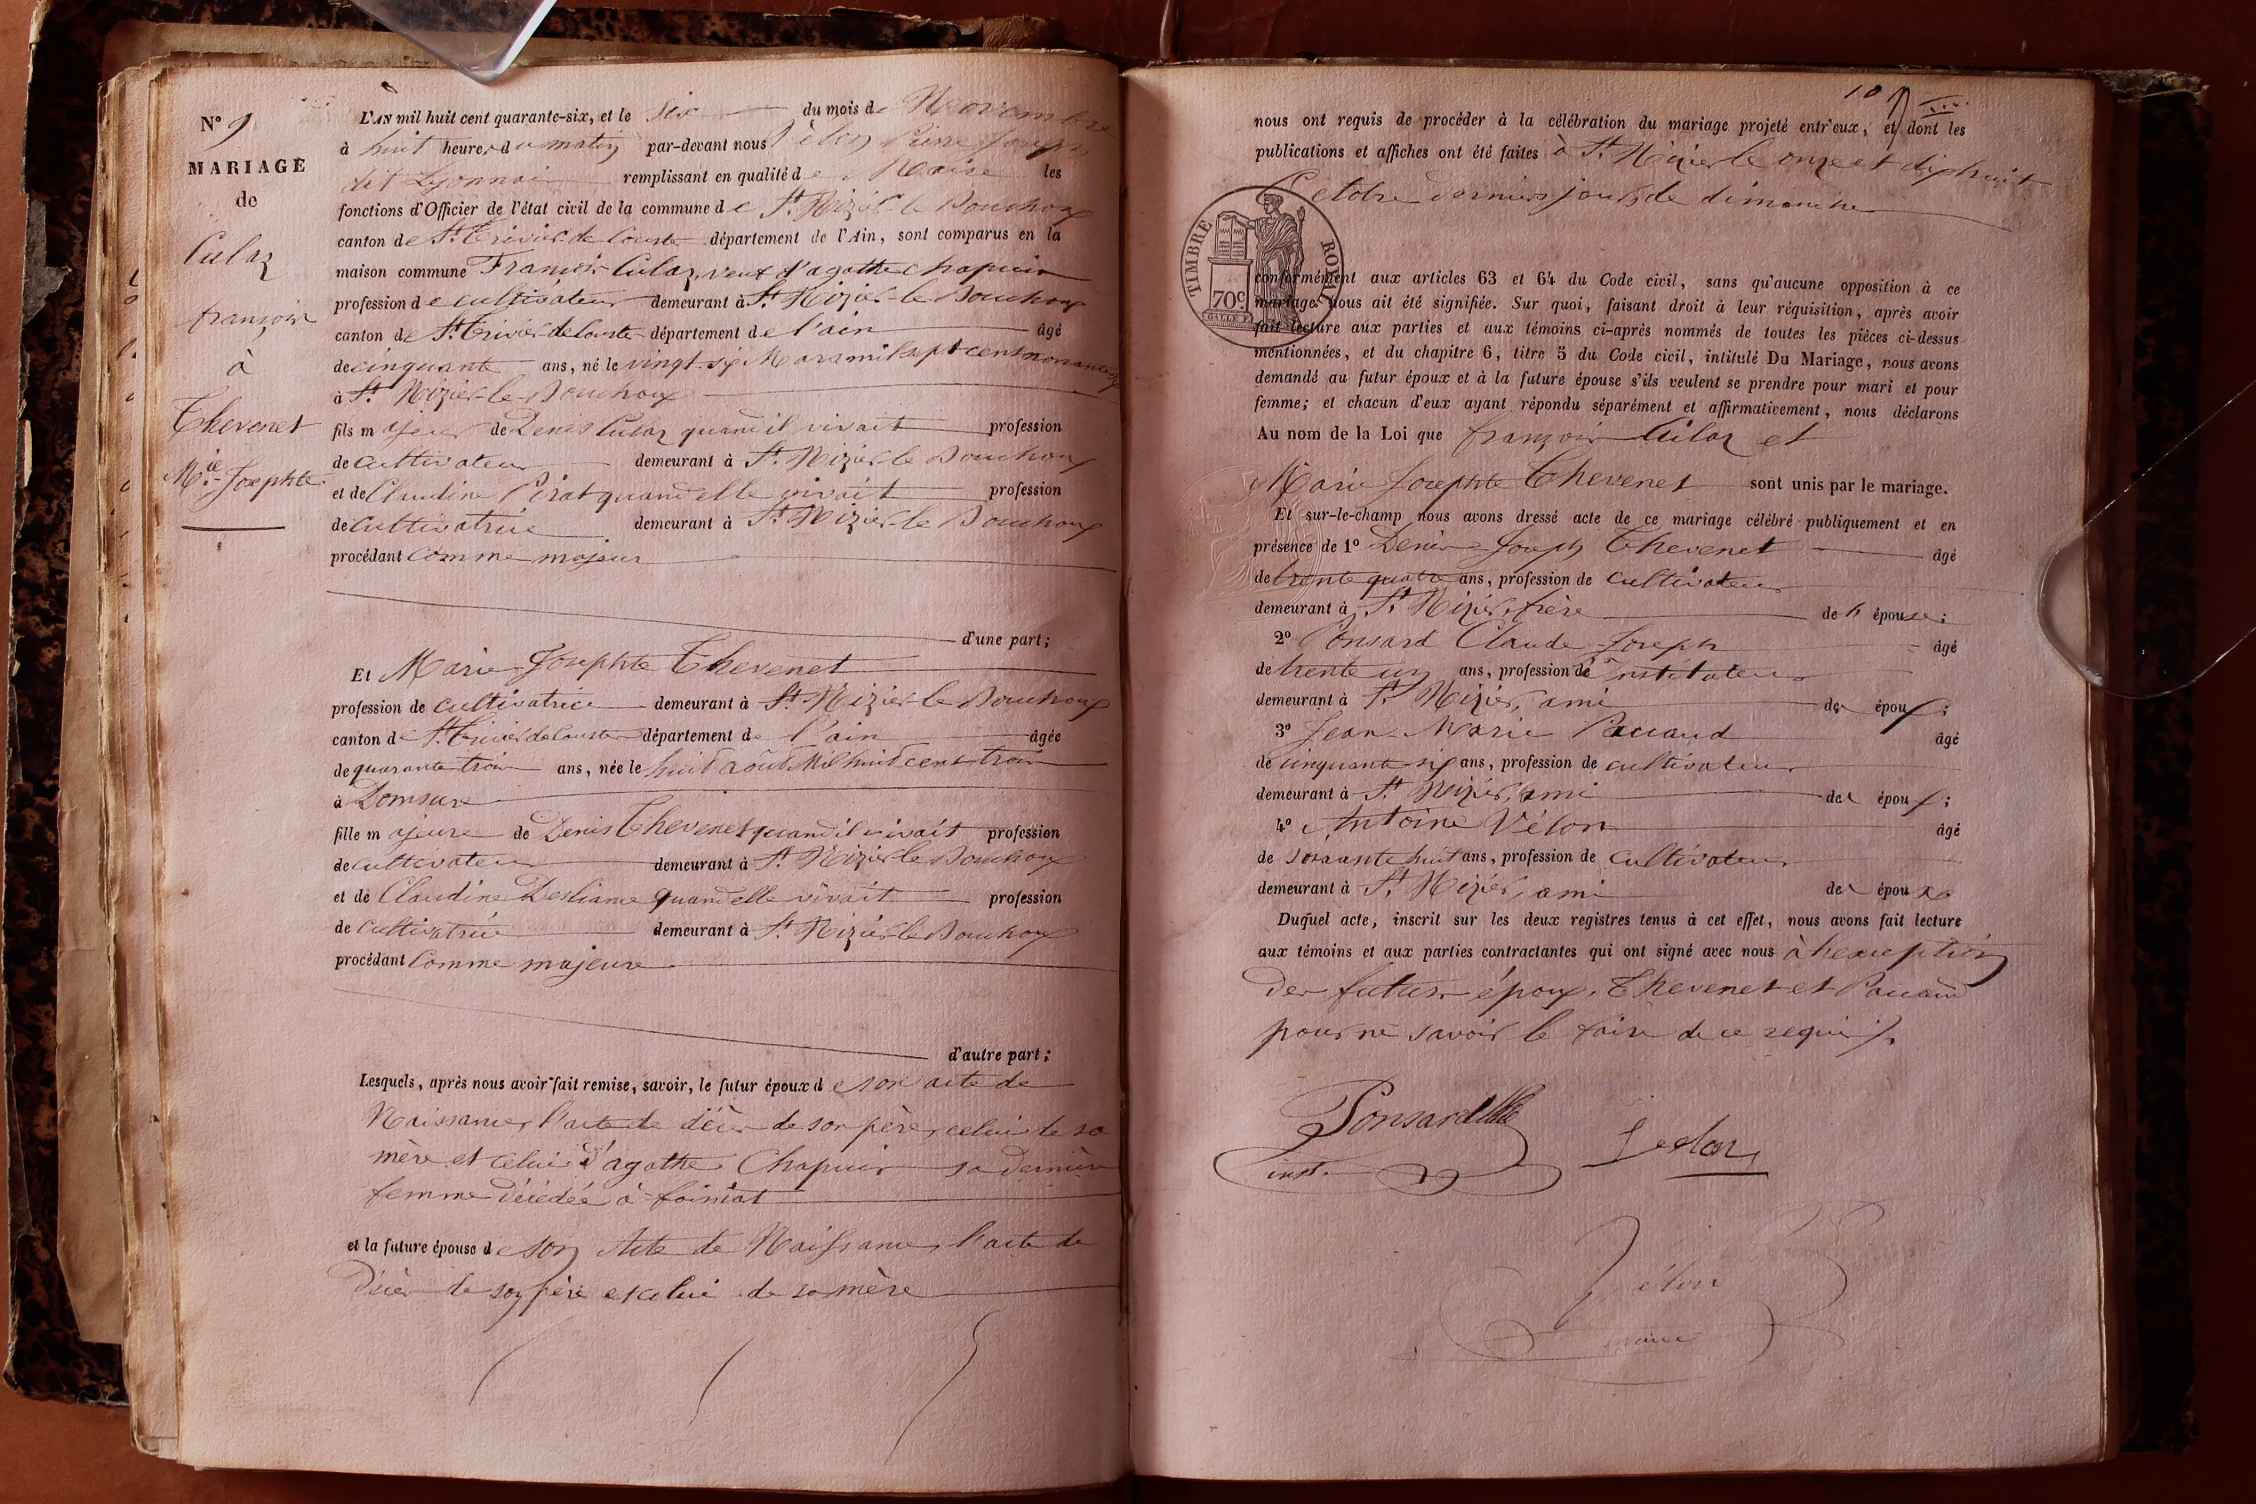 N° 9
MARIAGE
de
Culaz
françois
à
Thevenet
M.ie Josephte
L'AN mil huit cent quarante-six, et le six du mois de Novembre
à huit heures du matin par-devant nous Vélon Pierre Joseph
dit Lyonnais remplissant en qualité de Maire les
fonctions d'Officier de l'état civil de la commune de St. Nizier le Bouchoux
canton de St. Trivier de Courtes département de l'Ain, sont comparus en la
maison commune François Culaz, veuf d'agathe Chapuis
profession de cultivateur demeurant à St. Nizier-le-Bouchoux
canton de St. Trivier de Courtes département de l'ain âgé
de cinquante ans, né le vingt-six Mars mil sept cent nonante six
à St. Nizier-le-Bouchoux
fils majeur de Denis Culaz quand il vivait profession
de cultivateur demeurant à St. Nizier le Bouchoux
et de Claudine Pirat quand elle vivait profession
de cultivatrice demeurant à St. Nizier-le Bouchoux
procédant comme majeur
d'une part;
Et Marie-Josephte Thevenet
profession de cultivatrice demeurant à St. Nizier-le Bouchoux
canton de St. Trivier de Courtes département de l'ain âgée
de quarante trois ans, née le huit août Mil huit cent trois
à Domsure
fille majeure de Denis Thevenet quand il vivait profession
de cultivateur demeurant à St. Nizier le Bouchoux
et de Claudine Desliame quand elle vivait profession
de cultivatrice demeurant à St. Nizier le Bouchoux
procédant comme majeure
d'autre part;
Lesquels, après nous avoir fait remise, savoir, le futur époux de son acte de
Naissance, l'acte de décès de son père, celui de sa
mère et celui d'agathe Chapuis sa dernière
femme décédée à foissiat
et la future épouse de son Acte de Naissance, l'acte de
décès de son père et celui de sa mère
10
nous ont requis de procéder à la célébration du mariage projeté entr'eux, et dont les
publications et affiches ont été faites à St. Nizier le onze et dix huit
Octobre derniers jours de dimanche
TIMBRE ROYAL
70c
conformément aux articles 63 et 64 du Code civil, sans qu'aucune opposition à ce
mariage nous ait été signifiée. Sur quoi, faisant droit à leur réquisition, après avoir
fait lecture aux parties et aux témoins ci-après nommés de toutes les pièces ci-dessus
mentionnées, et du chapitre 6, titre 5 du Code civil, intitulé Du Mariage, nous avons
demandé au futur époux et à la future épouse s'ils veulent se prendre pour mari et pour
femme; et chacun d'eux ayant répondu séparément et affirmativement, nous déclarons
Au nom de la Loi que françois Culaz et
Marie Josephte Thevenet sont unis par le mariage.
Et sur-le-champ nous avons dressé acte de ce mariage célébré publiquement et en
présence de 1° Denis-Joseph Thevenet âgé
de trente quatre ans, profession de cultivateur
demeurant à St. Nizier, frère de l'épouse;
2° Ponsard Claude Joseph âgé
de trente un ans, profession de Instituteur
demeurant à St. Nizier, ami des époux;
3° Jean-Marie Pauand âgé
de cinquante six ans, profession de cultivateur
demeurant à St. Nizier, ami des époux;
4° Antoine Vélon âgé
de soixante huit ans, profession de cultivateur
demeurant à St. Nizier, ami des époux
Duquel acte, inscrit sur les deux registres tenus à cet effet, nous avons fait lecture
aux témoins et aux parties contractantes qui ont signé avec nous à l'exception
des futurs époux, Thevenet et Pauand
pour ne savoir le faire de ce requis.
Ponsard
inst.
Velon
Vélon
maire